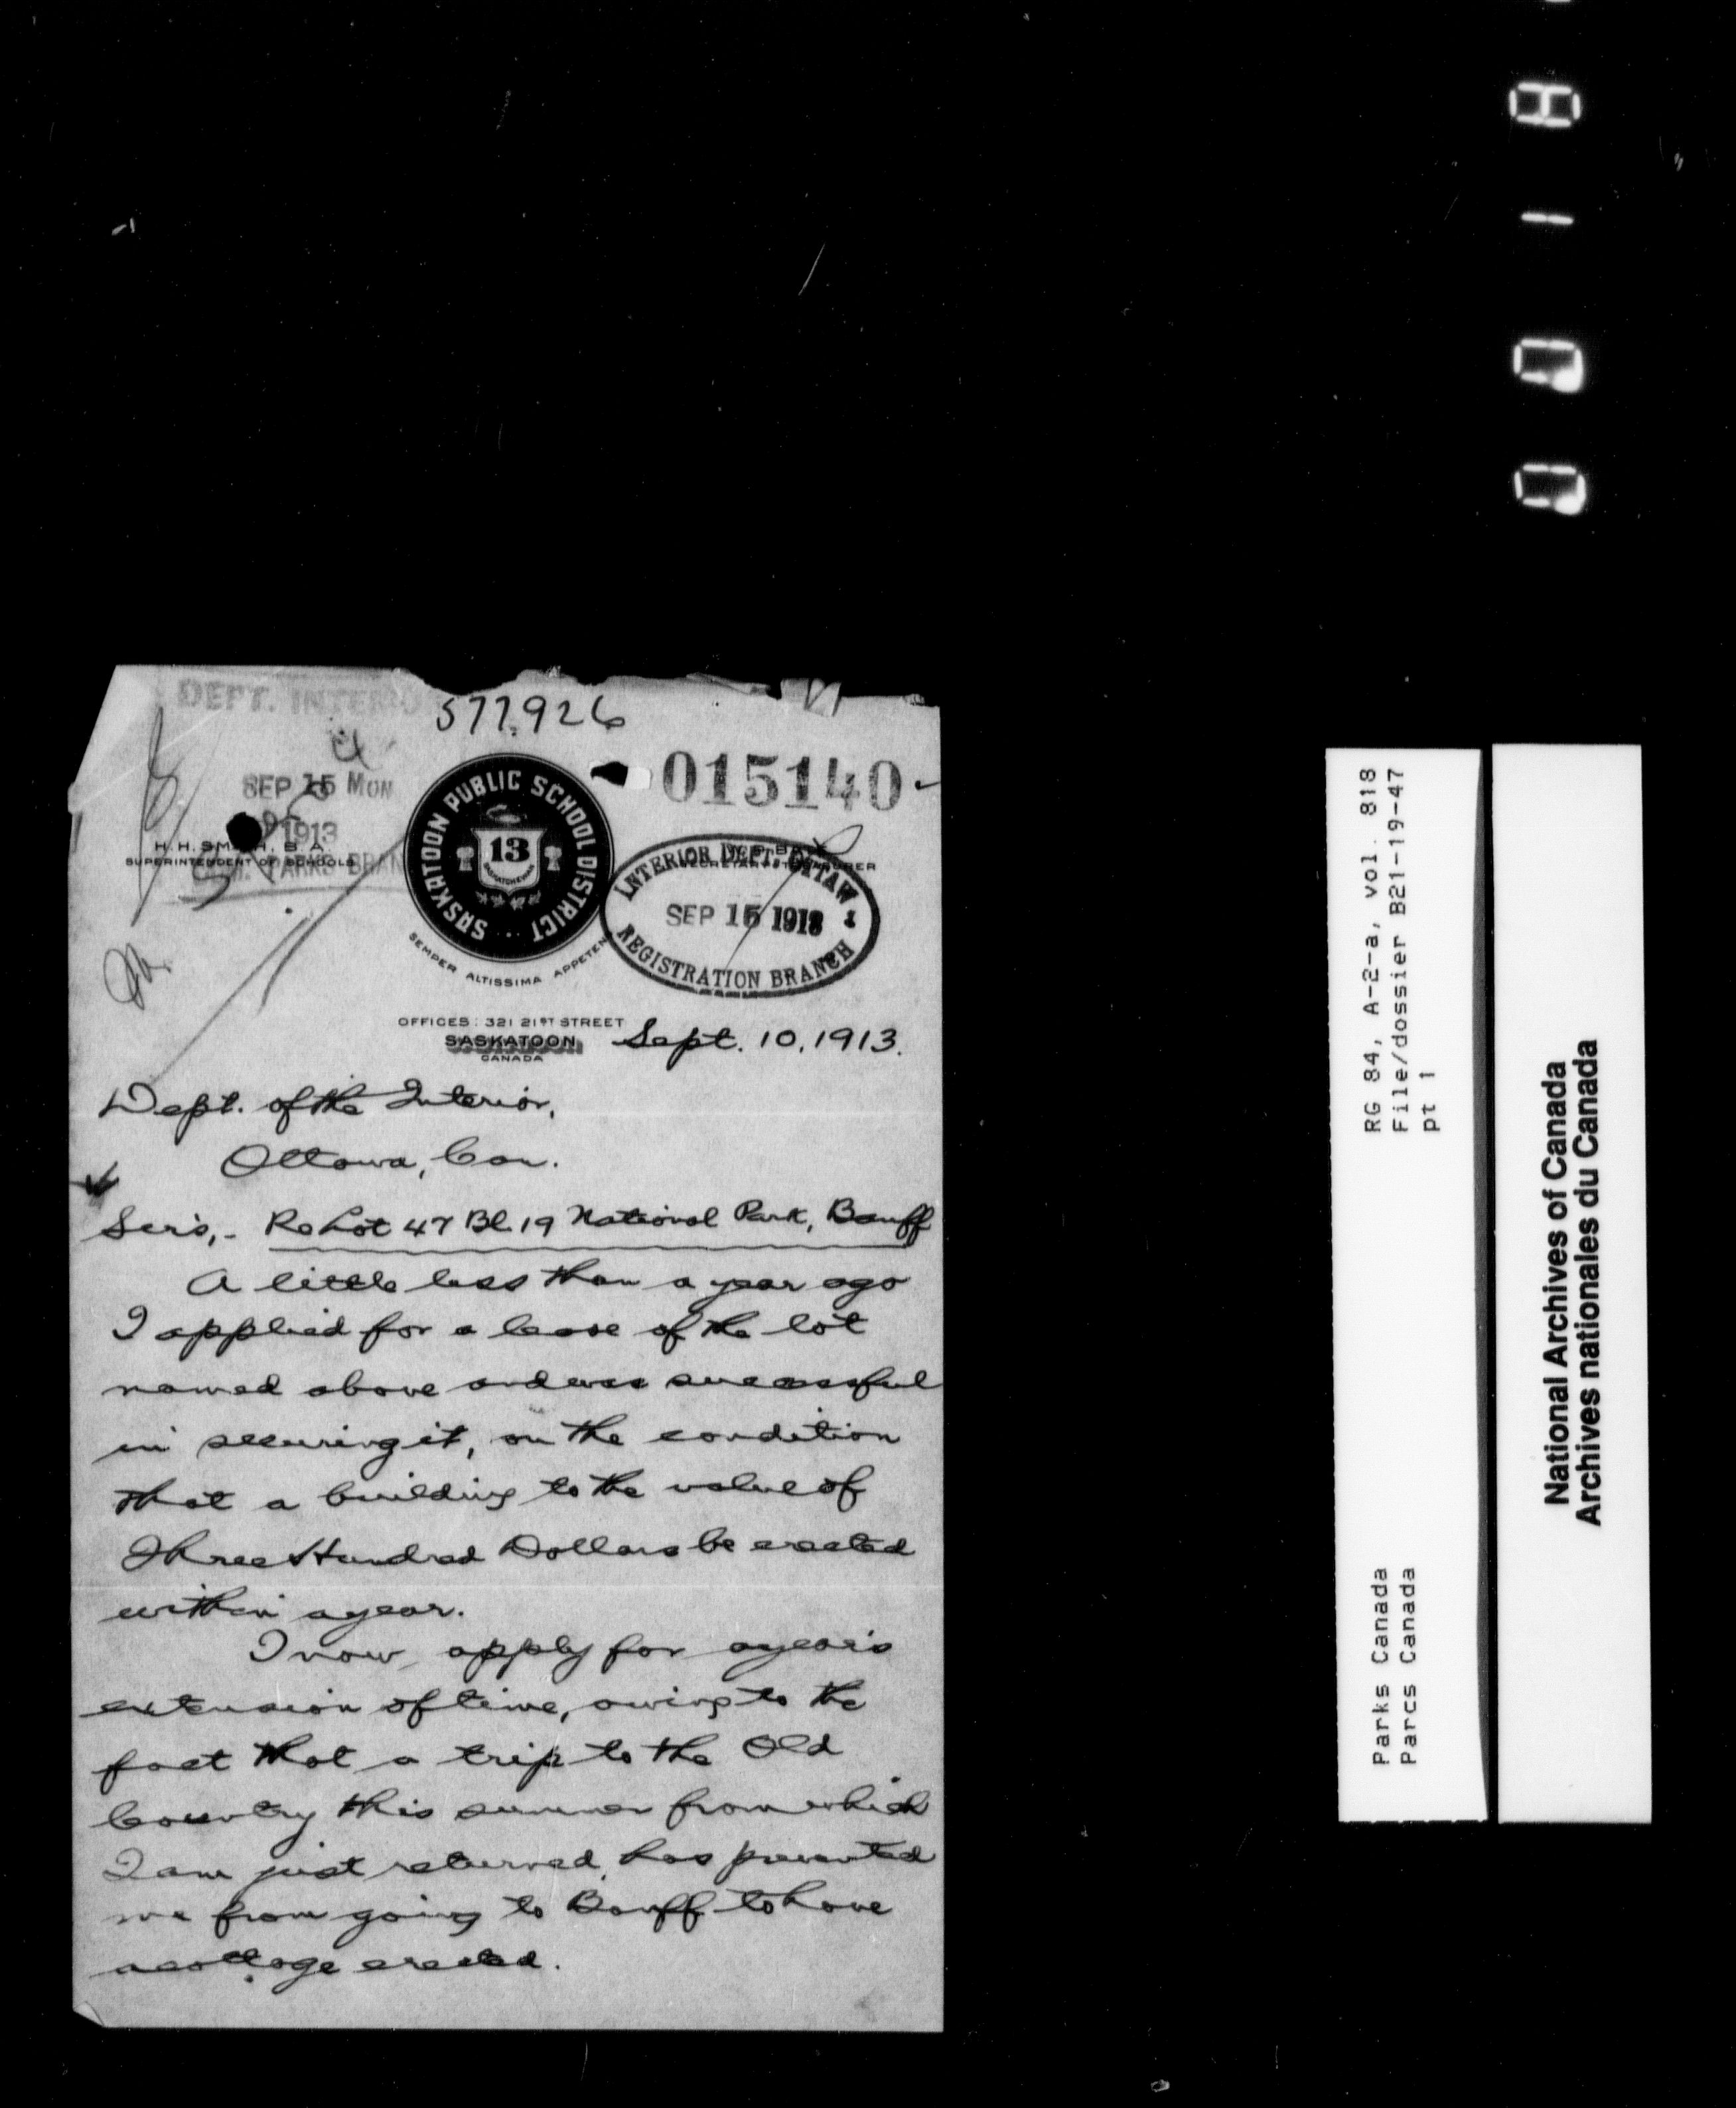 DEPT. INTERIO
577926
SEP 15 MON
1913
PARKS BRAN
015140
H. H. SMITH, B. A.
SUPERINTENDENT OF SCHOOLS
SECRETARY-TREASURER
SASKATOON PUBLIC SCHOOL DISTRICT
13
SASKATCHEWAN
SEMPER ALTISSIMA APPETEN
INTERIOR DEPT. OTTAWA
SEP 15 1913
REGISTRATION BRANCH
OFFICES: 321 21ST STREET
SASKATOON
CANADA
Sept. 10, 1913.
Dept. of the Interior,
Ottawa, Can.
Sirs,- Re Lot 47 Bl. 19 National Park, Banff
A little less than a year ago
I applied for a lease of the lot
named above and was successful
in securing it, on the condition
that a building to the value of
Three Hundred Dollars be erected
within a year.
I now apply for a year's
extension of time, owing to the
fact that a trip to the Old
Country this summer from which
I am just returned, has prevented
me from going to Banff to have
a cottage erected.
RG 84, A-2-a, vol. 818
File/dossier B21-19-47
pt 1
Parks Canada
Parcs Canada
National Archives of Canada
Archives nationales du Canada